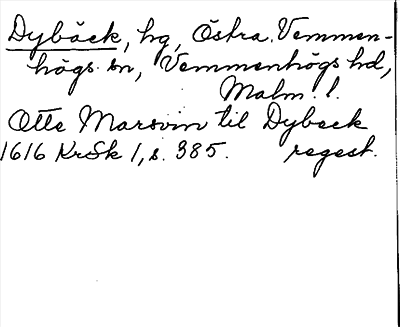 Dybäck, hg, Östra Vemmen-
högs sn, Vemmenhögs hd,
Malm. l.
Otte Marsvin til Dybeck
1616 KrSk 1, s. 385. regest.